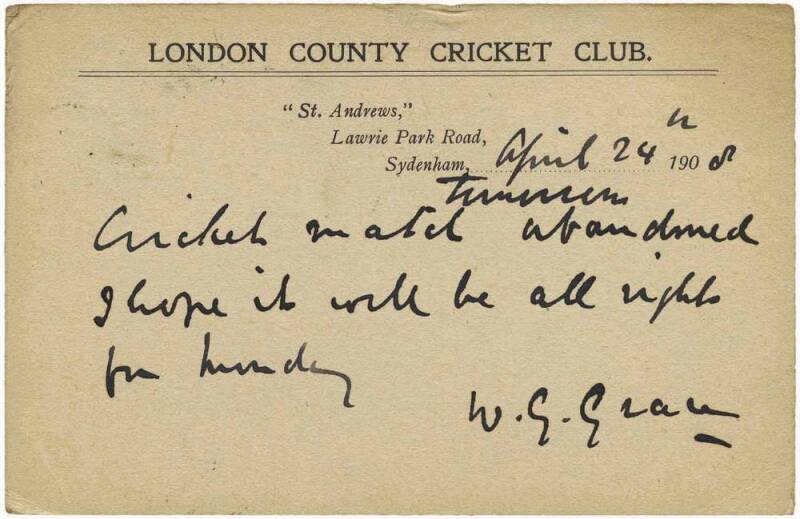 LONDON COUNTY CRICKET CLUB.
"St. Andrews,"
Lawrie Park Road,
Sydenham, April 24th 1908
tomorrow
Cricket match abandoned
I hope it will be all right
for Monday
W. G. Grace